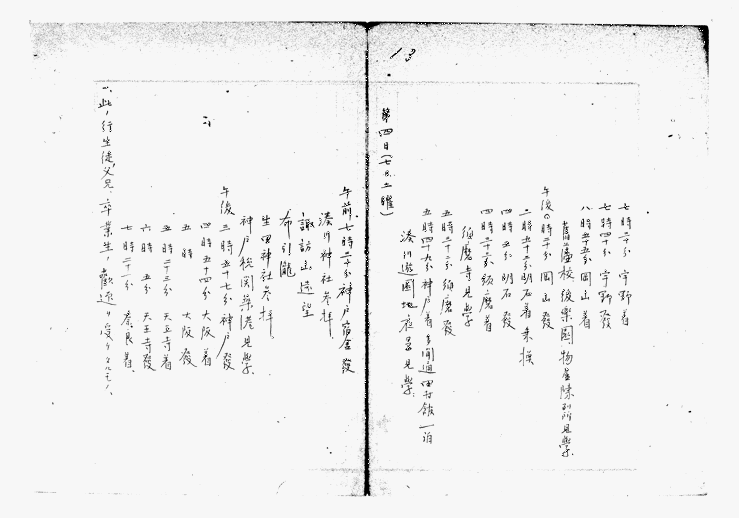 13
七時二十分 宇野着
七時四十分 宇野發
八時五十五分 岡山着
舊藩校、後樂園、物産陳列所見學
午後〇時三十分 岡山發
二時五十三分明石着 乗換
四時五分 明石發
四時三十三分 須磨着
須磨寺見學
五時三十三分 須磨發
五時四十九分 神戸着 多聞通 四方館 一泊
湊川遊園地夜景見學
第四日(七月 土曜)
午前七時三十分神戸宿舍發
湊川神社参拝
諏訪山遠望
布引瀧
生田神社参拝
神戸税関築港見學
午後三時五十七分神戸發
四時五十四分大阪着
五時 大阪發
五時二十三分 天王寺着
六時五分 天王寺發
七時二十一分 奈良着
此ノ行生徒父兄、卒業生ノ歡迎ヲ受クル